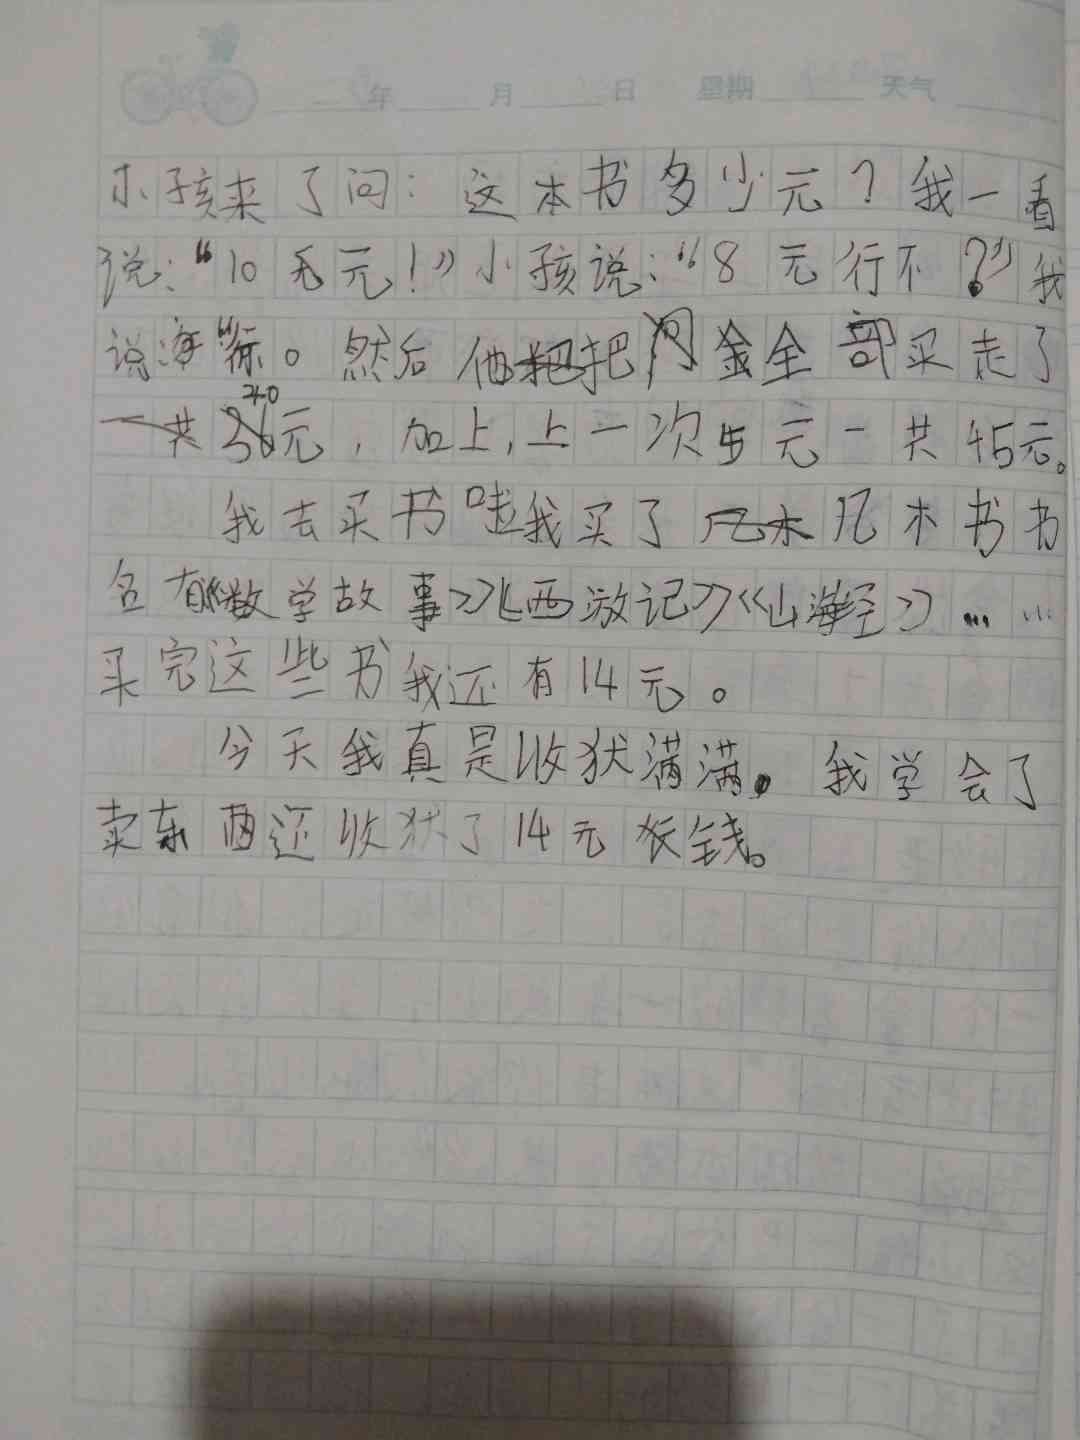 年 月 日 星期 天气
小孩来了问：这本书多少元？我一看
说：“10元！”小孩说：“8元行不？”我
说海“标。然后他把金全部买走了
一共40元，加上，上一次5元一共45元。
我去买书啦我买了几本书书
名有《数学故事》《西游记》《山海经》……
买完这些书我还有14元。
今天我真是收狀满满。我学会了
卖东西还收狀了14元钱。